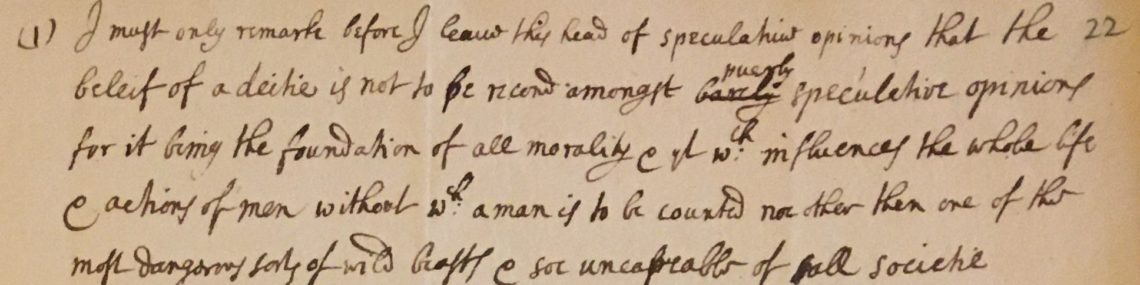 (1) I must only remarke before I leave this head of speculative opinions that the 22
beleif of a deitie is not to be recond amongst barely purely speculative opinions
for it being the foundation of all morality & yt wch influences the whole life
& actions of men without wch a man is to be counted noe other then one of the
most dangerous sorts of wild beasts & soe uncapeable of all societie